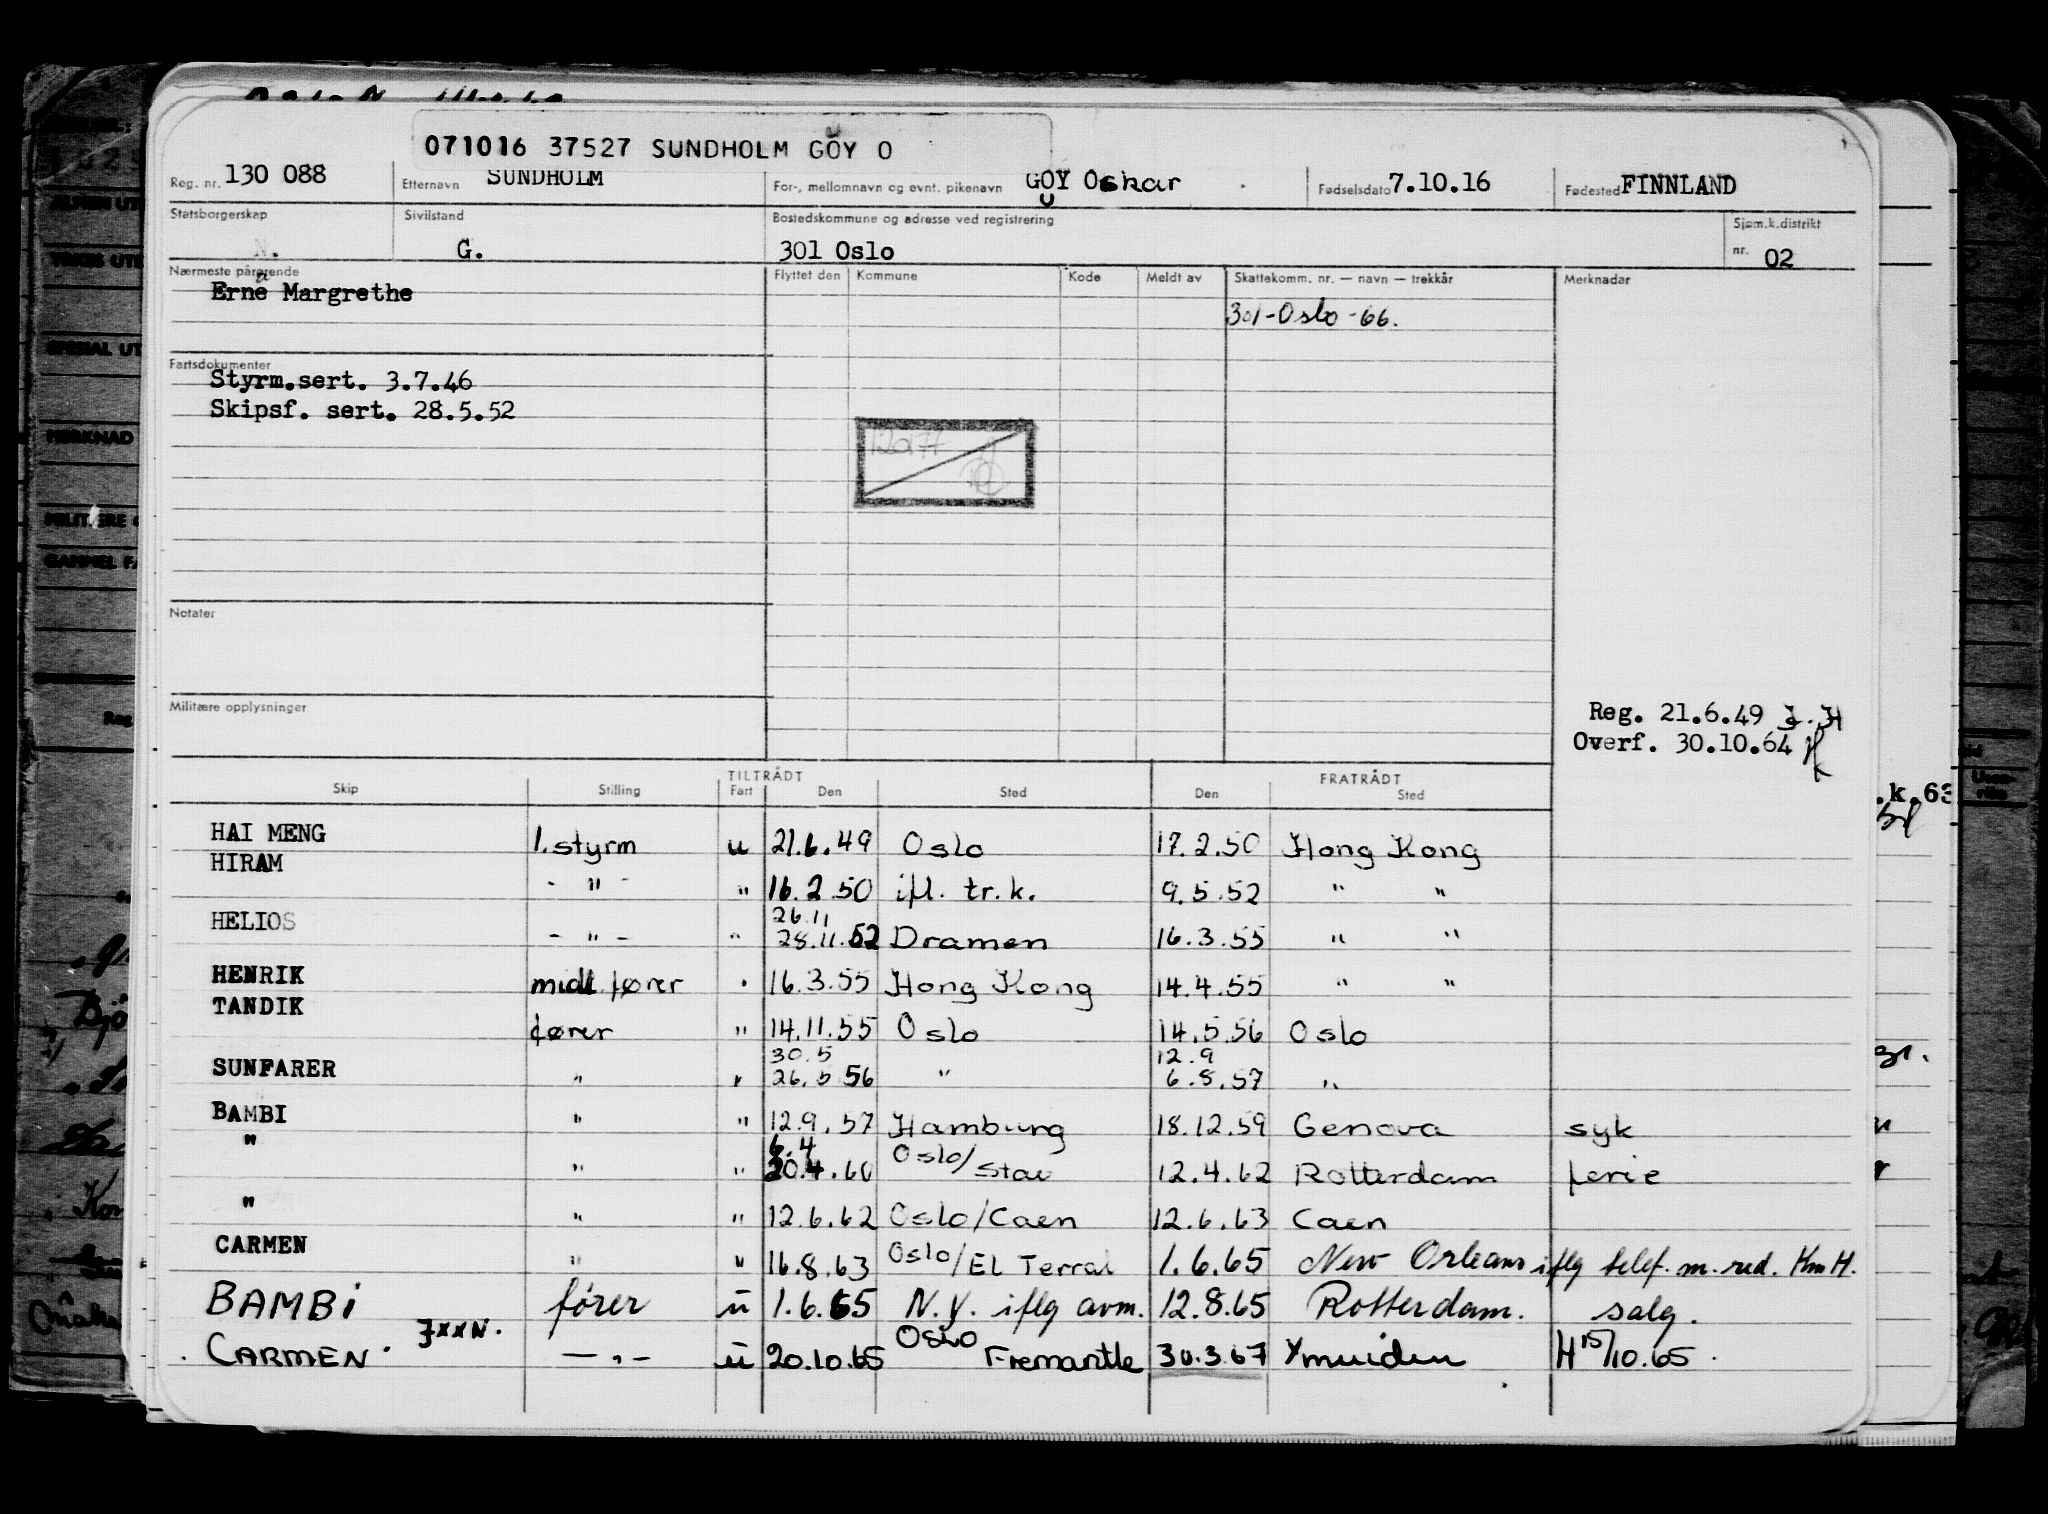 071016 37527 SUNDHOLM GÖY O
Reg. nr. 130 088 Etternavn SUNDHOLM For-, mellomnavn og evnt. pikenavn GÖY Oskar Fødselsdato 7.10.16 Fødested FINNLAND
Statsborgerskap Sivilstand Bostedskommune og adresse ved registrering Sjøm.k.distrikt
N. G. 301 Oslo nr. 02
Nærmeste pårørende Flyttet den Kommune Kode Meldt av Skattekomm. nr. — navn — trekkår Merknader
Erna Margrethe
301-Oslo-66.
Fartsdokumenter
Styrm.sert. 3.7.46
Skipsf. sert. 28.5.52
Notater
Militære opplysninger
Reg. 21.6.49
Overf. 30.10.64
TILTRÅDT FRATRÅDT
Skip Stilling Fart Den Sted Den Sted
HAI MENG 1.styrm u 21.6.49 Oslo 17.2.50 Hong Kong
HIRAM - " - " 16.2.50 ifl. tr.k. 9.5.52 " "
26.11
HELIOS - " - " 28.11.52 Dramen 16.3.55 " "
HENRIK midl. fører " 16.3.55 Hong Kong 14.4.55 " "
TANDIK fører " 14.11.55 Oslo 14.5.56 Oslo
30.5 12.9
SUNFARER " " 26.5 56 " 6.8.57 "
BAMBI " " 12.9.57 Hamburg 18.12.59 Genova syk
6.4
" " " 20.4.60 Oslo/Stav 12.4.62 Rotterdam ferie
" " " 12.6.62 Oslo/Caen 12.6.63 Caen
CARMEN " " 16.8.63 Oslo/El Terral 1.6.65 New Orleans iflg telef. m. red. Km H.
BAMBI fører u 1.6.65 N.Y. iflg avm. 12.8.65 Rotterdam. salg.
CARMEN. JXXN. — " — u 20.10.65 Oslo Fremantle 30.3.67 Ymuiden H 15/10.65.